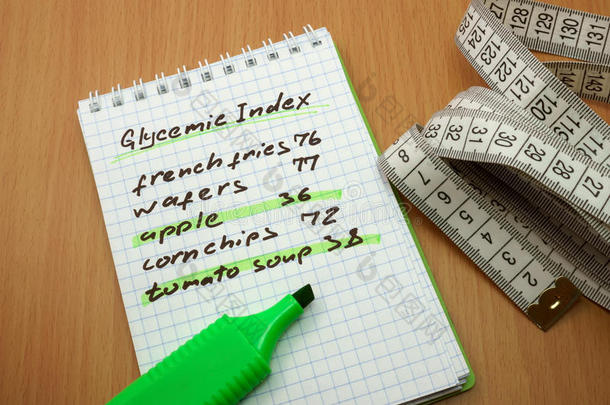 Glycemic Index
french fries 76
wafers 77
apple 36
corn chips 72
tomato soup 38
128 129 130 131
127
126
125
124
123
122
121
120
119
143
32 31 30 29 28 27 26
8 7 6 5 4 3 2